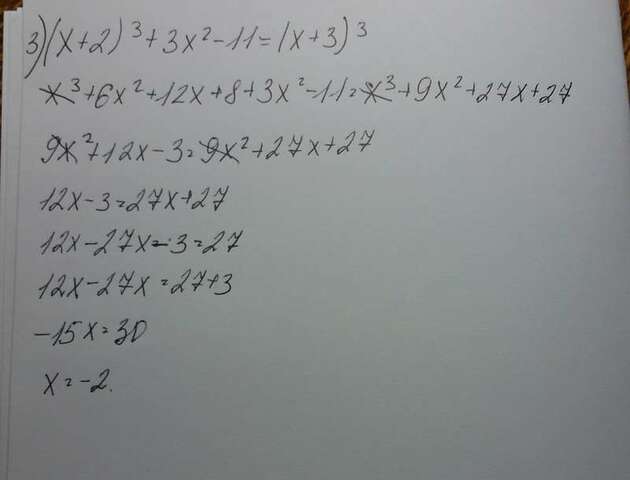 3) (x+2)³+3x²-11=(x+3)³
x³+6x²+12x+8+3x²-11=x³+9x²+27x+27
9x²+12x-3=9x²+27x+27
12x-3=27x+27
12x-27x-3=27
12x-27x=27+3
-15x=30
x=-2.